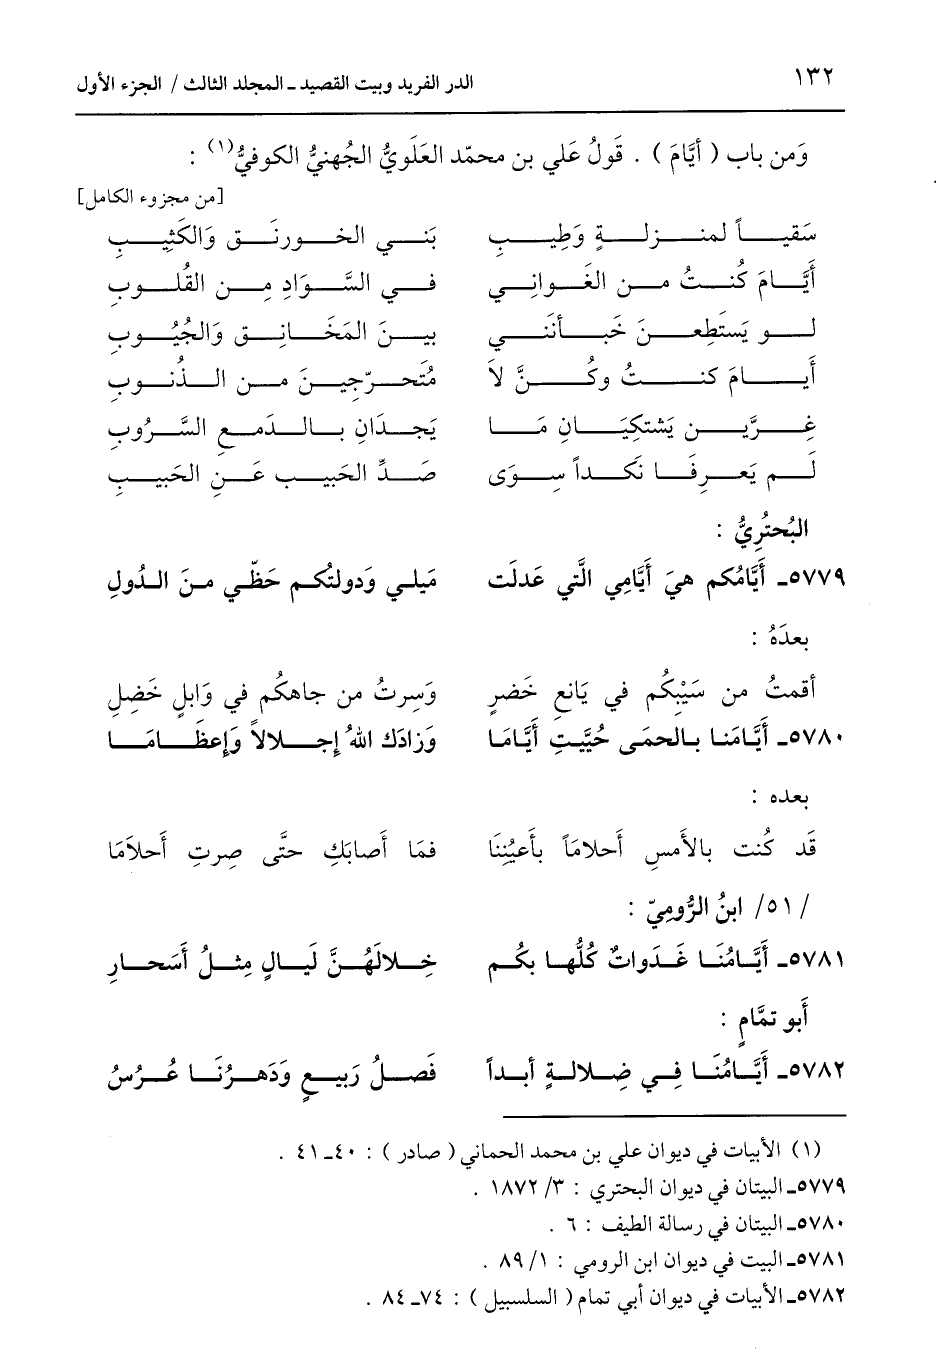 ١٣٢ الدر الفريد وبيت القصيد ـ المجلد الثالث / الجزء الأول
وَمن باب ( أيَّامَ ) . قَولُ عَلي بن محمّد العَلَويُّ الجُهنيُّ الكوفيُّ(١) :
[من مجزوء الكامل]
سَقياً لمنزلةٍ وَطِيبِ بَني الخورنَقِ وَالكَثِيبِ
أَيَّامَ كُنتُ من الغَوانِي في السَّوَادِ مِن القُلوبِ
لو يَستَطِعنَ خَبأنَني بينَ المَخَانِقِ وَالجُيُوبِ
أَيامَ كنتُ وكُنَّ لاَ مُتَحرّجِينَ من الذُنوبِ
غِرَّينِ يَشتكِيَانِ مَا يَجدَانِ بالدَمعِ السَّرُوبِ
لَم يَعرِفَا نَكداً سِوَى صَدِّ الحَبيبِ عَنِ الحَبيبِ
البُحتُرِيُّ :
٥٧٧٩ـ أَيَّامُكم هيَ أَيَّامِي الَّتي عَدلَت مَيلي وَدولتُكم حَظّي منَ الدُولِ
بعدَهُ :
أقمتُ من سَيْبِكُم في يَانعٍ خَضرٍ وَسِرتُ من جاهكُم في وَابلٍ خَضِلِ
٥٧٨٠ـ أَيَّامَنا بالحمَى حُيَّيتِ أَيَّامَا وَزادَك اللهُ إجلالاً وَإعظَامَا
بعده :
قَد كُنت بالأَمسِ أَحلامَاً بأَعيُنِنَا فمَا أَصابَكِ حتَّى صِرتِ أَحلاَمَا
/٥١/ ابنُ الرُّومِيّ :
٥٧٨١ـ أَيَّامُنَا غَدَواتٌ كُلُّها بكُم خِلالَهُنَّ لَيالٍ مِثلُ أَسَحارِ
أَبو تمَّامٍ :
٥٧٨٢ـ أَيَّامُنَا فِي ضِلالةٍ أبداً فَصلُ رَبيعٍ وَدَهرُنَا عُرُسُ
(١) الأبيات في ديوان علي بن محمد الحماني ( صادر ) : ٤٠ـ٤١ .
٥٧٧٩ـ البيتان في ديوان البحتري : ٣/ ١٨٧٢ .
٥٧٨٠ـ البيتان في رسالة الطيف : ٦ .
٥٧٨١ـ البيت في ديوان ابن الرومي : ١/ ٨٩ .
٥٧٨٢ـ الأبيات في ديوان أبي تمام ( السلسبيل ) : ٧٤ـ٨٤ .